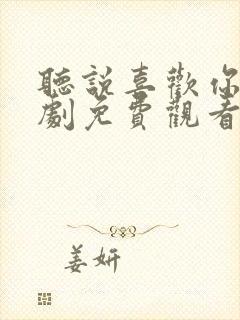 聽說喜歡你
劇免費觀看
姜妍